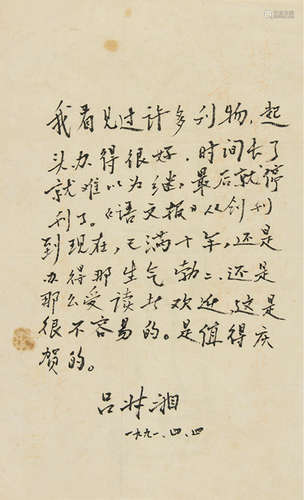 我看见过许多刊物,起
头办得很好,时间长了
就难以为继,最后就停
刊了。《语文报》从创刊
到现在,已满十年,还是
办得那生气勃〻,还是
那么受读者欢迎,这是
很不容易的。是值得庆
贺的。
吕叔湘
一九九一.四.四